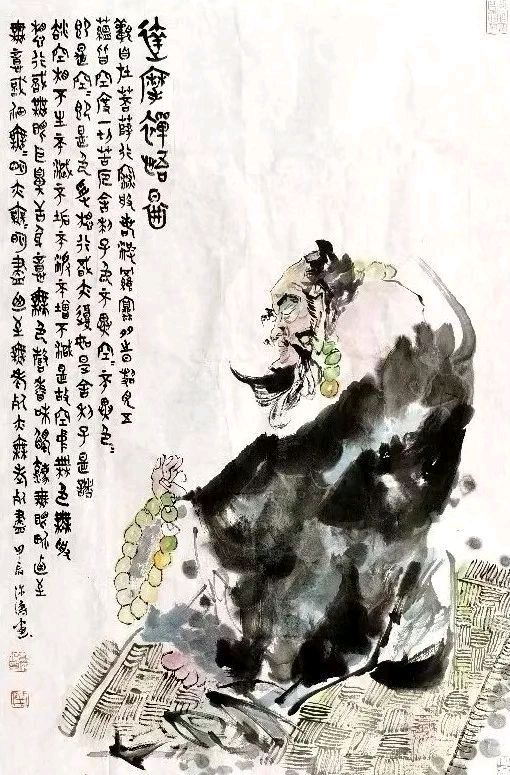 達摩禪悟圖
觀自在菩薩行深般若波羅蜜多時照見五
蘊皆空度一切苦厄舍利子色不異空〻不異色〻
即是空〻即是色受想行識亦復如是舍利子是諸
法空相不生不滅不垢不淨不增不減是故空中無色無受
想行識無眼耳鼻舌身意無色聲香味觸法無眼界乃至
無意識界無〻明亦無〻明盡乃至無老死亦無老死盡 甲辰 畫